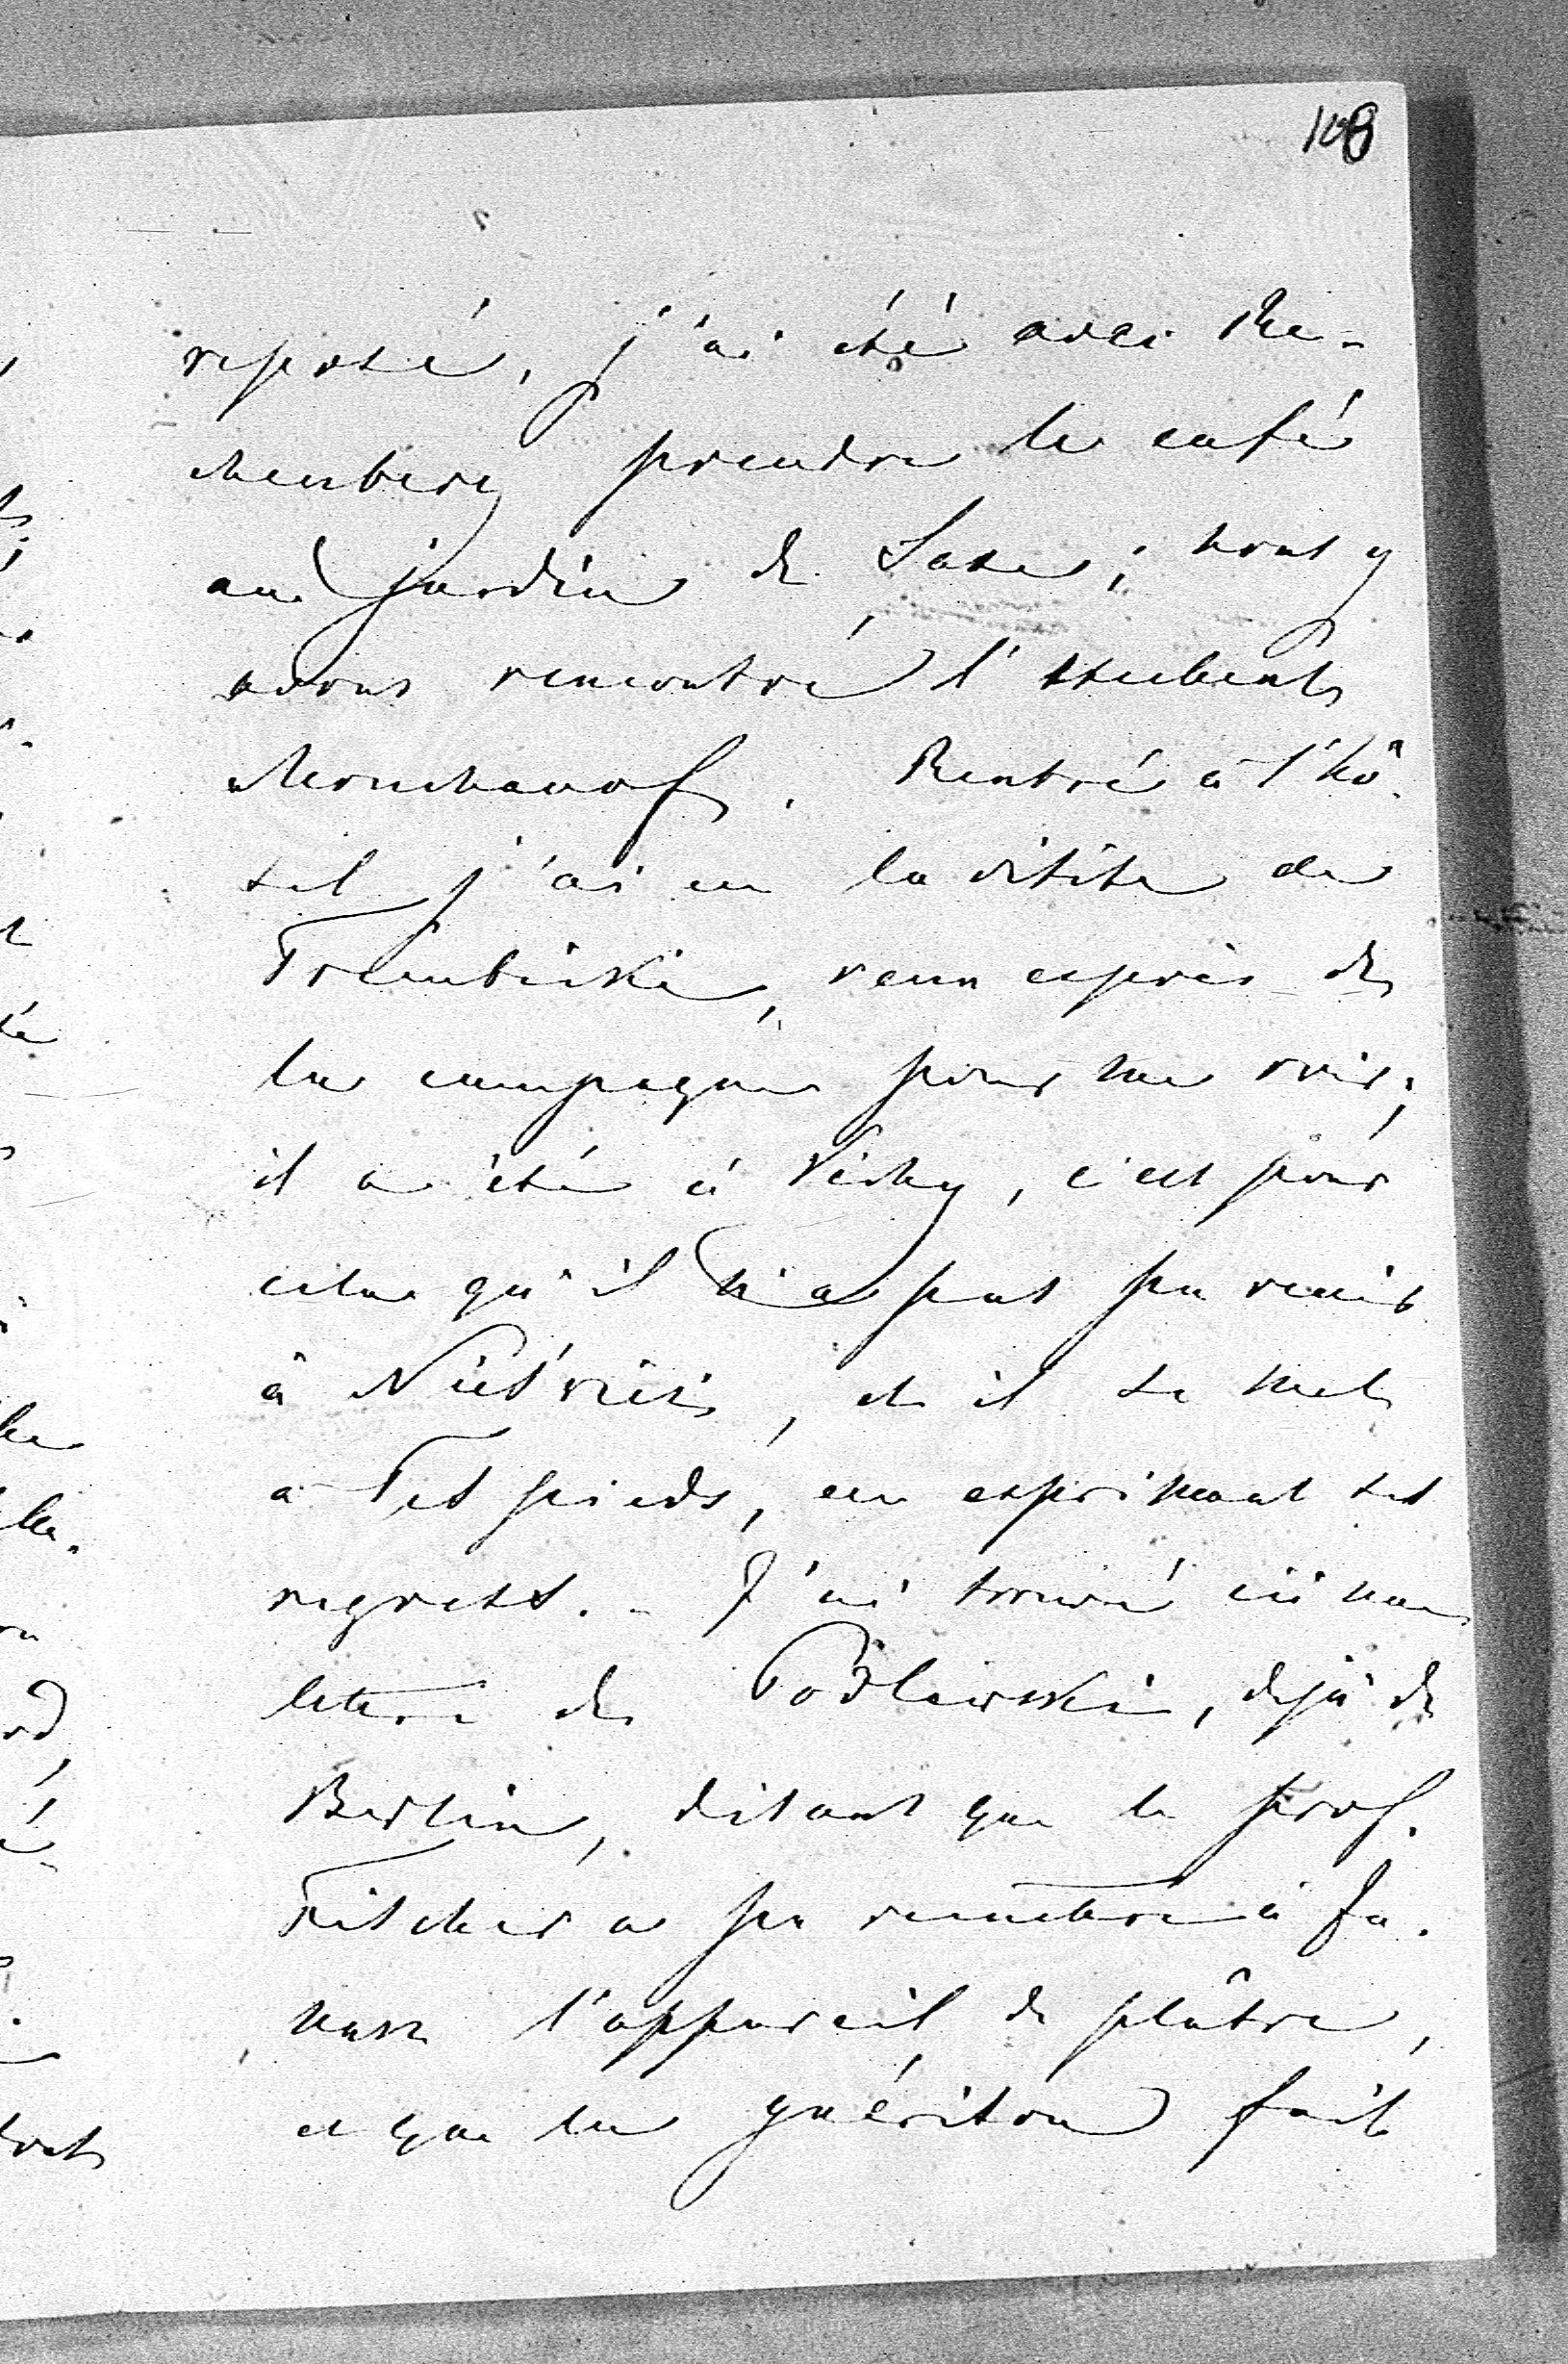 108
reposé, j'ai été avec Re-
chenberg prendre le café
au jardin de Saxe; nous y
avons rencontré l'excellent
Mouchanof. Rentré à l'hô-
tel j'ai eu la visite de
Trembicki, venu exprès de
la campagne pour me voir;
il a été à Vichy, c'est pour
cela qu'il n'a pas pu venir
à Nieśwież, et il se met
à Tes pieds, en exprimant ses
regrets. - J'ai trouvé ici une
lettre de Podlewski, déjà de
Berlin, disant que le prof.
Fischer a pu remettre à Ja-
nusz l'appareil de plâtre,
et que la guérison fait